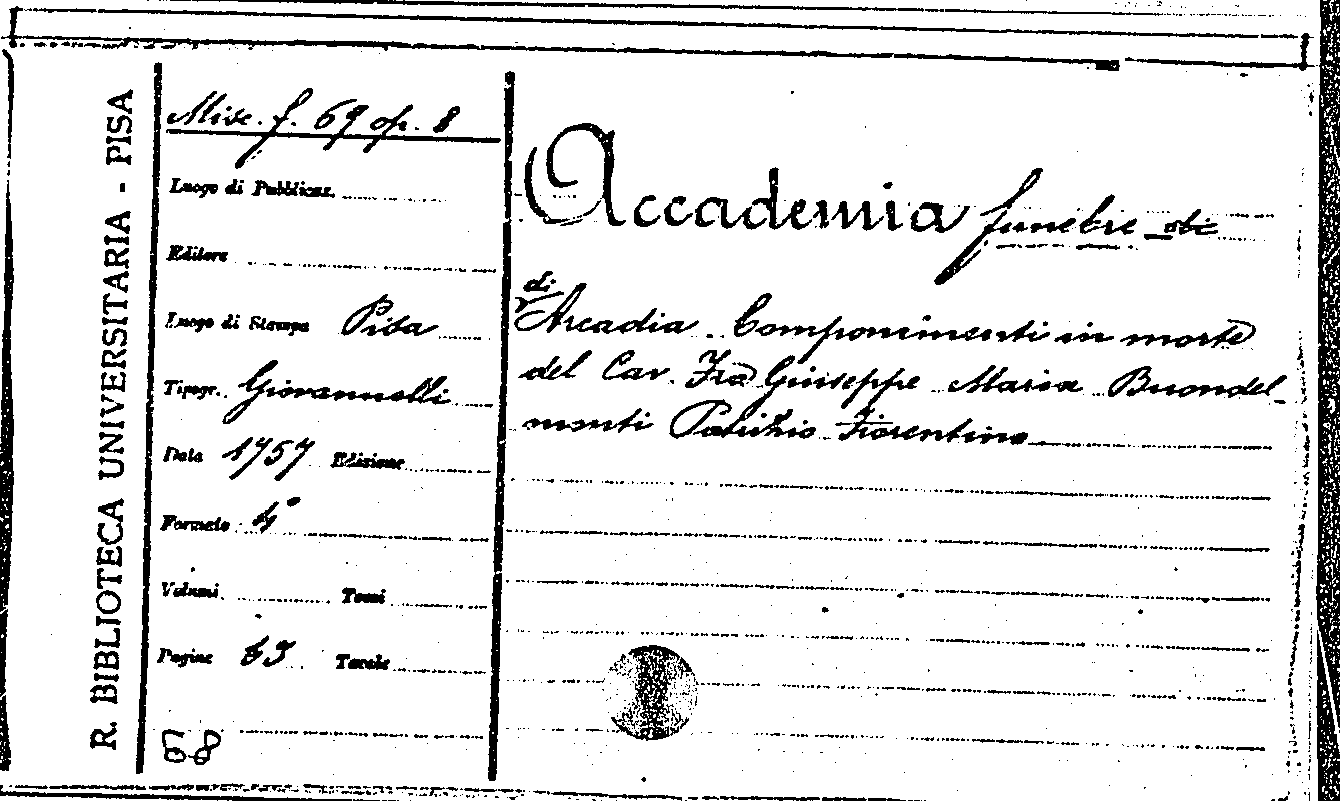 R. BIBLIOTECA UNIVERSITARIA - PISA
Misc. f. 69 op. 8
Luogo di Pubblicaz.
Editore
Luogo di Stampa Pisa
Tipogr. Giovannelli
Data 1757 Edizione
Formato 4°
Volumi Tomi
Pagine 63 Tavole
Accademia funebre
di
Arcadia. Componimenti in morte
del Cav. Fra Giuseppe Maria Buondel-
monti Patrizio Fiorentino